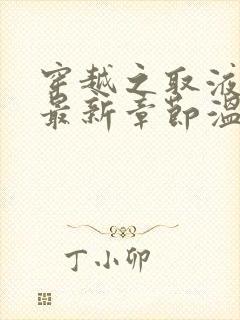 穿越之取液
最新章节温
丁小卯